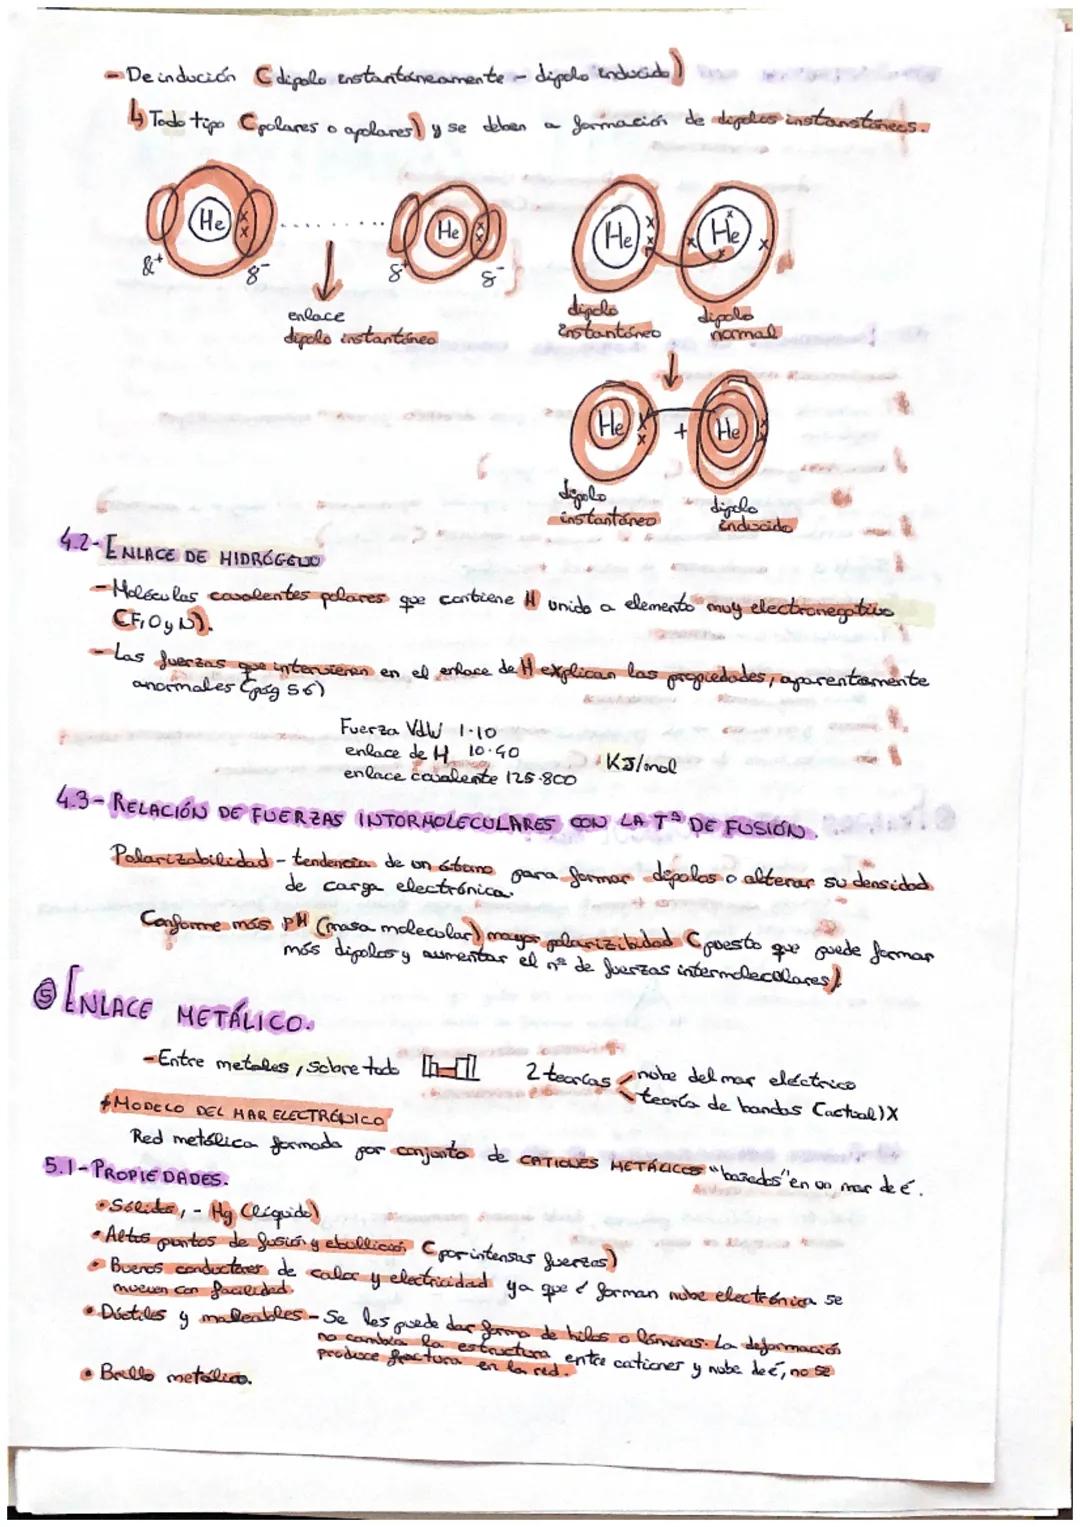 - De indución (dipolo instantáneamente - dipolo inducido)
↳ Todo tipo (polares o apolares) y se deben a formación de dipolos instanstáneos.
He He He He
δ+ δ- δ+ δ-
enlace
dipolo instantáneo
dipolo instantáneo
dipolo normal
He + He
dipolo instantáneo
dipolo inducido
4.2- ENLACE DE HIDRÓGENO
- Moléculas covalentes polares que contiene H unido a elemento muy electronegativo
(F, O y N).
- Las fuerzas que intervienen en el enlace de H explican las propiedades, aparentemente
anormales (pág 56)
Fuerza VdW 1·10
enlace de H 10·40
enlace covalente 125·800
KJ/mol
4.3- RELACIÓN DE FUERZAS INTORMOLECULARES CON LA Tª DE FUSIÓN.
Polarizabilidad - tendencia de un átomo para formar dipolos o alterar su densidad
de carga electrónica.
Conforme más PM (masa molecular) mayor polarizibidad (puesto que puede formar
más dipolos y aumentar el nº de fuerzas intermoleculares).
⑤ ENLACE METÁLICO.
- Entre metales, sobre todo
2 teorías
nube del mar eléctrico
teoría de bandas (actual) X
* MODELO DEL MAR ELECTRÓNICO
Red metálica formada por conjunto de CATIONES METÁLICOS "basados" en un mar de é.
5.1- PROPIEDADES.
• Sólidos, - Hg (líquido)
• Altos puntos de fusión y ebullición (por intensas fuerzas)
• Buenos conductores de calor y electricidad ya que é forman nube electrónica se
mueven con facilidad.
• Dúctiles y maleables - Se les puede dar forma de hilos o láminas. La deformación
no cambia la estructura entre cationes y nube de é, no se
produce fractura en la red.
• Brillo metálico.